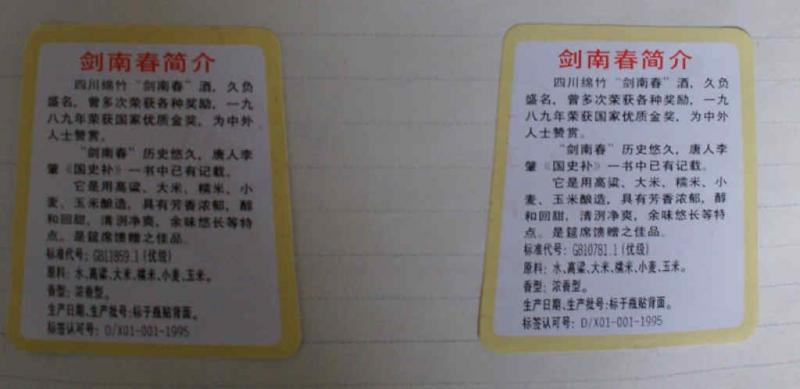 剑南春简介
四川绵竹“剑南春”酒，久负
盛名，曾多次荣获各种奖励，一九
八九年荣获国家优质金奖，为中外
人士赞赏。
“剑南春”历史悠久，唐人李
肇《国史补》一书中已有记载。
它是用高粱、大米、糯米、小
麦、玉米酿造，具有芳香浓郁，醇
和回甜，清洌净爽，余味悠长等特
点。是筵席馈赠之佳品。
标准代号：GB11859.1(优级)
原料：水、高粱、大米、糯米、小麦、玉米。
香型：浓香型。
生产日期、生产批号：标于瓶贴背面。
标签认可号：D/X01-001-1995
剑南春简介
四川绵竹“剑南春”酒，久负
盛名，曾多次荣获各种奖励，一九
八九年荣获国家优质金奖，为中外
人士赞赏。
“剑南春”历史悠久，唐人李
肇《国史补》一书中已有记载。
它是用高粱、大米、糯米、小
麦、玉米酿造，具有芳香浓郁，醇
和回甜，清洌净爽，余味悠长等特
点。是筵席馈赠之佳品。
标准代号：GB10781.1(优级)
原料：水、高粱、大米、糯米、小麦、玉米。
香型：浓香型。
生产日期、生产批号：标于瓶贴背面。
标签认可号：D/X01-001-1995